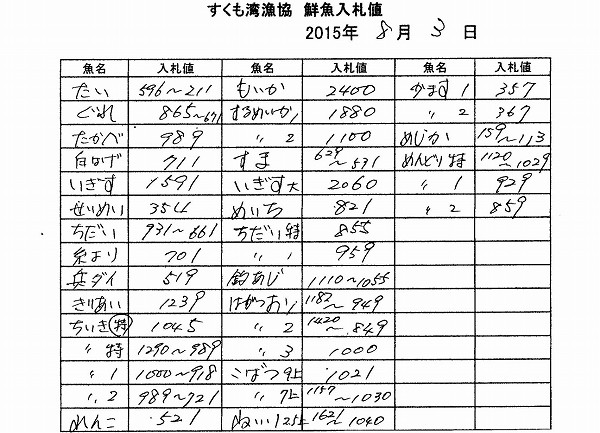 すくも湾漁協 鮮魚入札値
2015年 8月 3日
魚名 入札値 魚名 入札値 魚名 入札値
たい 596～211 もいか 2400 かます 1 357
ぐれ 865～671 するめいか1 1880 〃 2 367
たかべ 989 〃 2 1100 めじか 159～113
白はげ 711 すま 629～531 めんどり特 1120～1029
いぎす 1591 いぎす大 2060 〃 1 929
せいめい 354 めいち 821 〃 2 859
ちだい 931～661 ちだい特 855
糸より 701 〃 1 959
兵ダイ 519 釣あじ 1110～1055
きりあい 1239 はがつお1 1182～949
ちいき㊕ 1045 〃 2 1420～849
〃 特 1290～989 〃 3 1000
〃 1 1000～918 こばつ 9上 1021
〃 2 989～721 〃 7上 1157～1030
れんこ 521 ぬいい125上 1621～1040